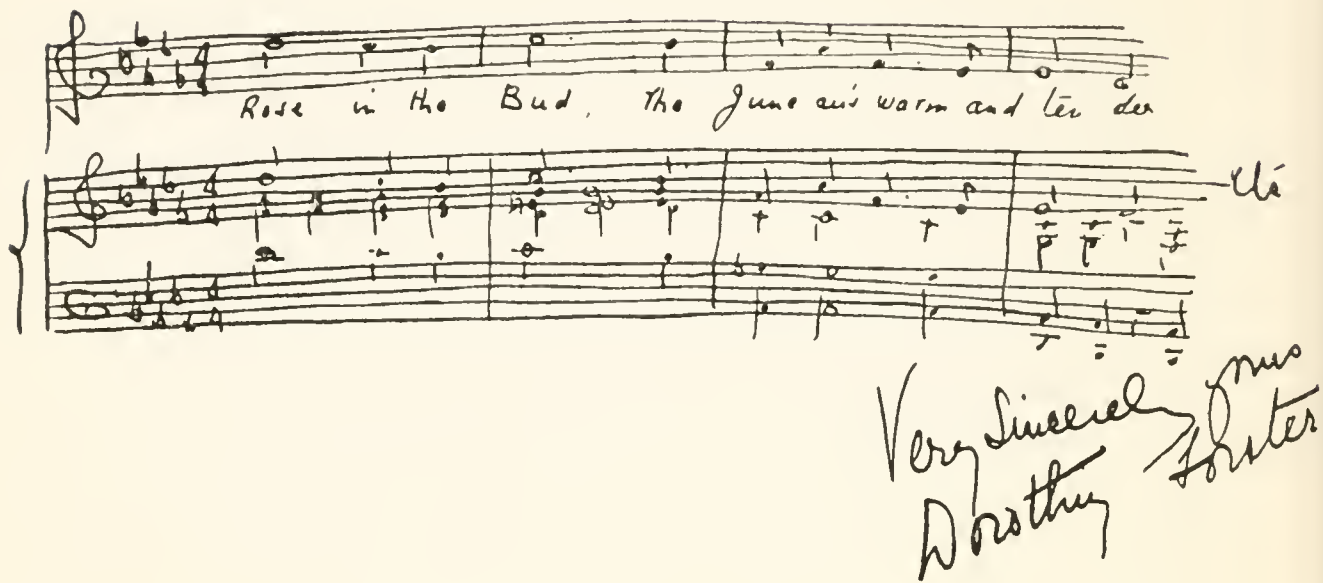 Rose in the Bud, The June air's warm and ten der
etc
Very Sincerely yours
Dorothy Forster